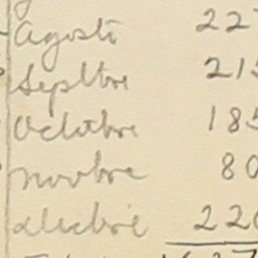 Agosto 227
Septbre 215
Octobre 185
Novbre 80
Decbre 220